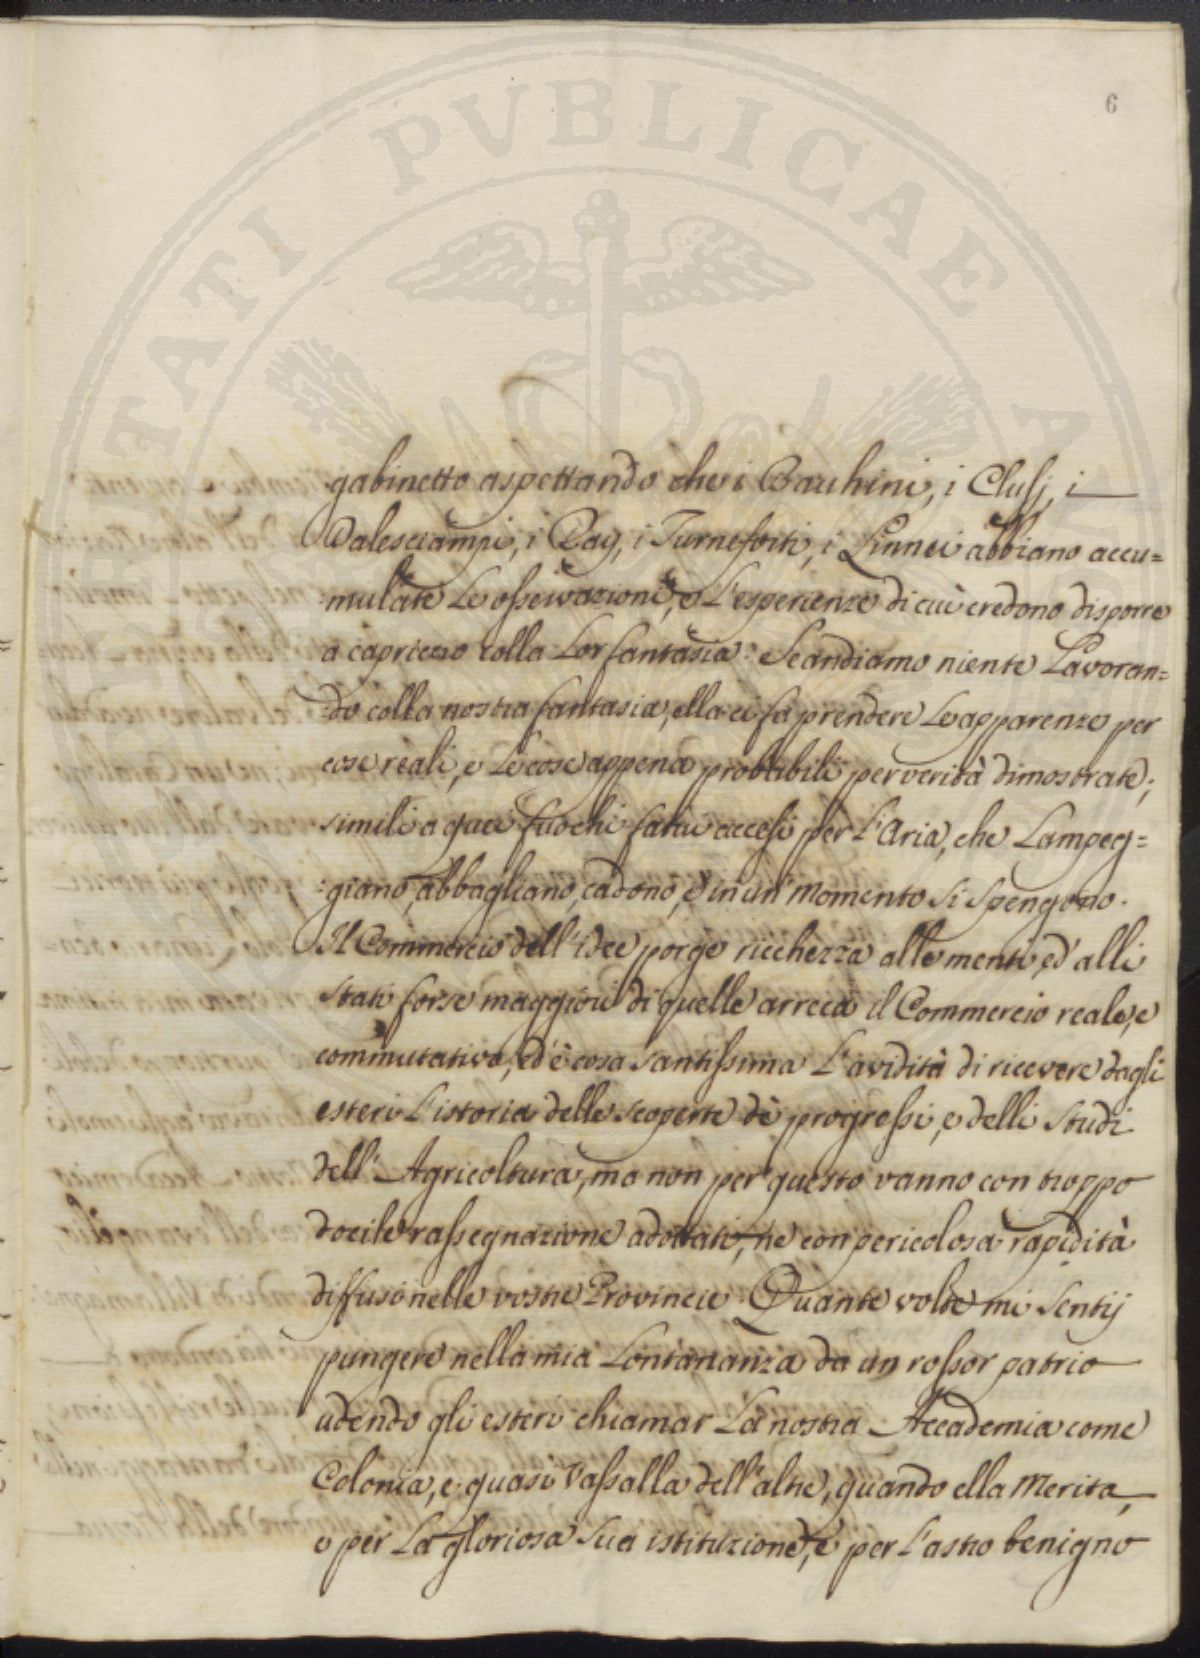 6
PVBLICAE
gabinetto aspettando che i Bauhini, i Clusj, i
Dalesciampi, i Ray, i Turneforti, i Linnei abbiano accu=
mulate le osservazioni, e l'esperienze di cui credono disporre
a capriccio colla lor fantasia: Se andiamo niente lavoran=
do colla nostra fantasia, ella ci fa prendere le apparenze per
cose reali, e le cose appena probbibili per verità dimostrate;
simili a quei fuochi fatui accesi per l'Aria, che lampeg=
:giano, abbagliano, cadono, e in un momento si spengono.
Il Commercio dell'idee porge ricchezza alle menti, ed alli
stati forse maggiori di quelle arreca il Commercio reale, e
commutativo, ed è cosa santissima l'avidità di ricevere dagli
esteri l'istoria delle scoperte dè progressi, e delli studi
dell'Agricoltura, ma non per questo vanno con troppo
docile rassegnazione adottati, ne con pericolosa rapidità
diffusi nelle vostre Provincie. Quante volte mi sentij
pungere nella mia lontananza da un rossor patrio
udendo gli esteri chiamar la nostra Accademia come
Colonia, e quasi Vassalla dell'altre, quando ella merita,
o per la gloriosa sua istituzione, e per l'astro benigno